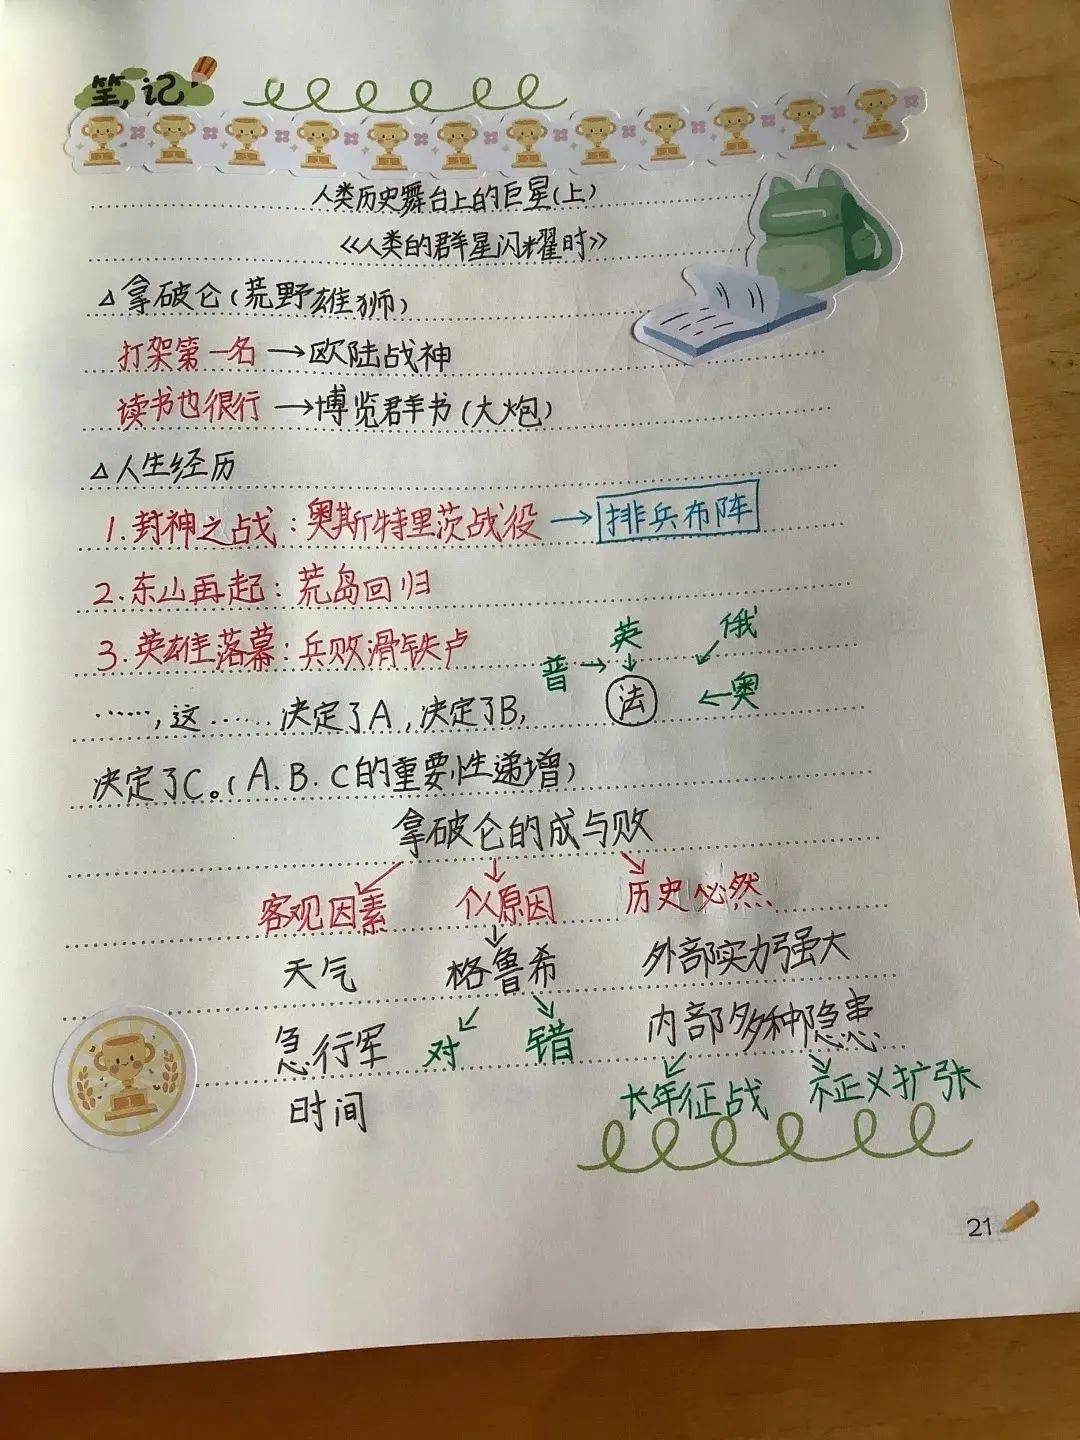 笔记
人类历史舞台上的巨星(上)
《人类的群星闪耀时》
△拿破仑(荒野雄狮)
打架第一名→欧陆战神
读书也很行→博览群书(大炮)
△人生经历
1.封神之战:奥斯特里茨战役→排兵布阵
2.东山再起:荒岛回归
3.英雄落幕:兵败滑铁卢
英 俄
普→ 法 ←奥
……,这……决定了A,决定了B,
决定了C。(A.B.C的重要性递增)
拿破仑的成与败
客观因素 个人原因 历史必然
天气 格鲁希 外部实力强大
急行军 对 错 内部多种隐患
时间 长年征战 不正义扩张
21